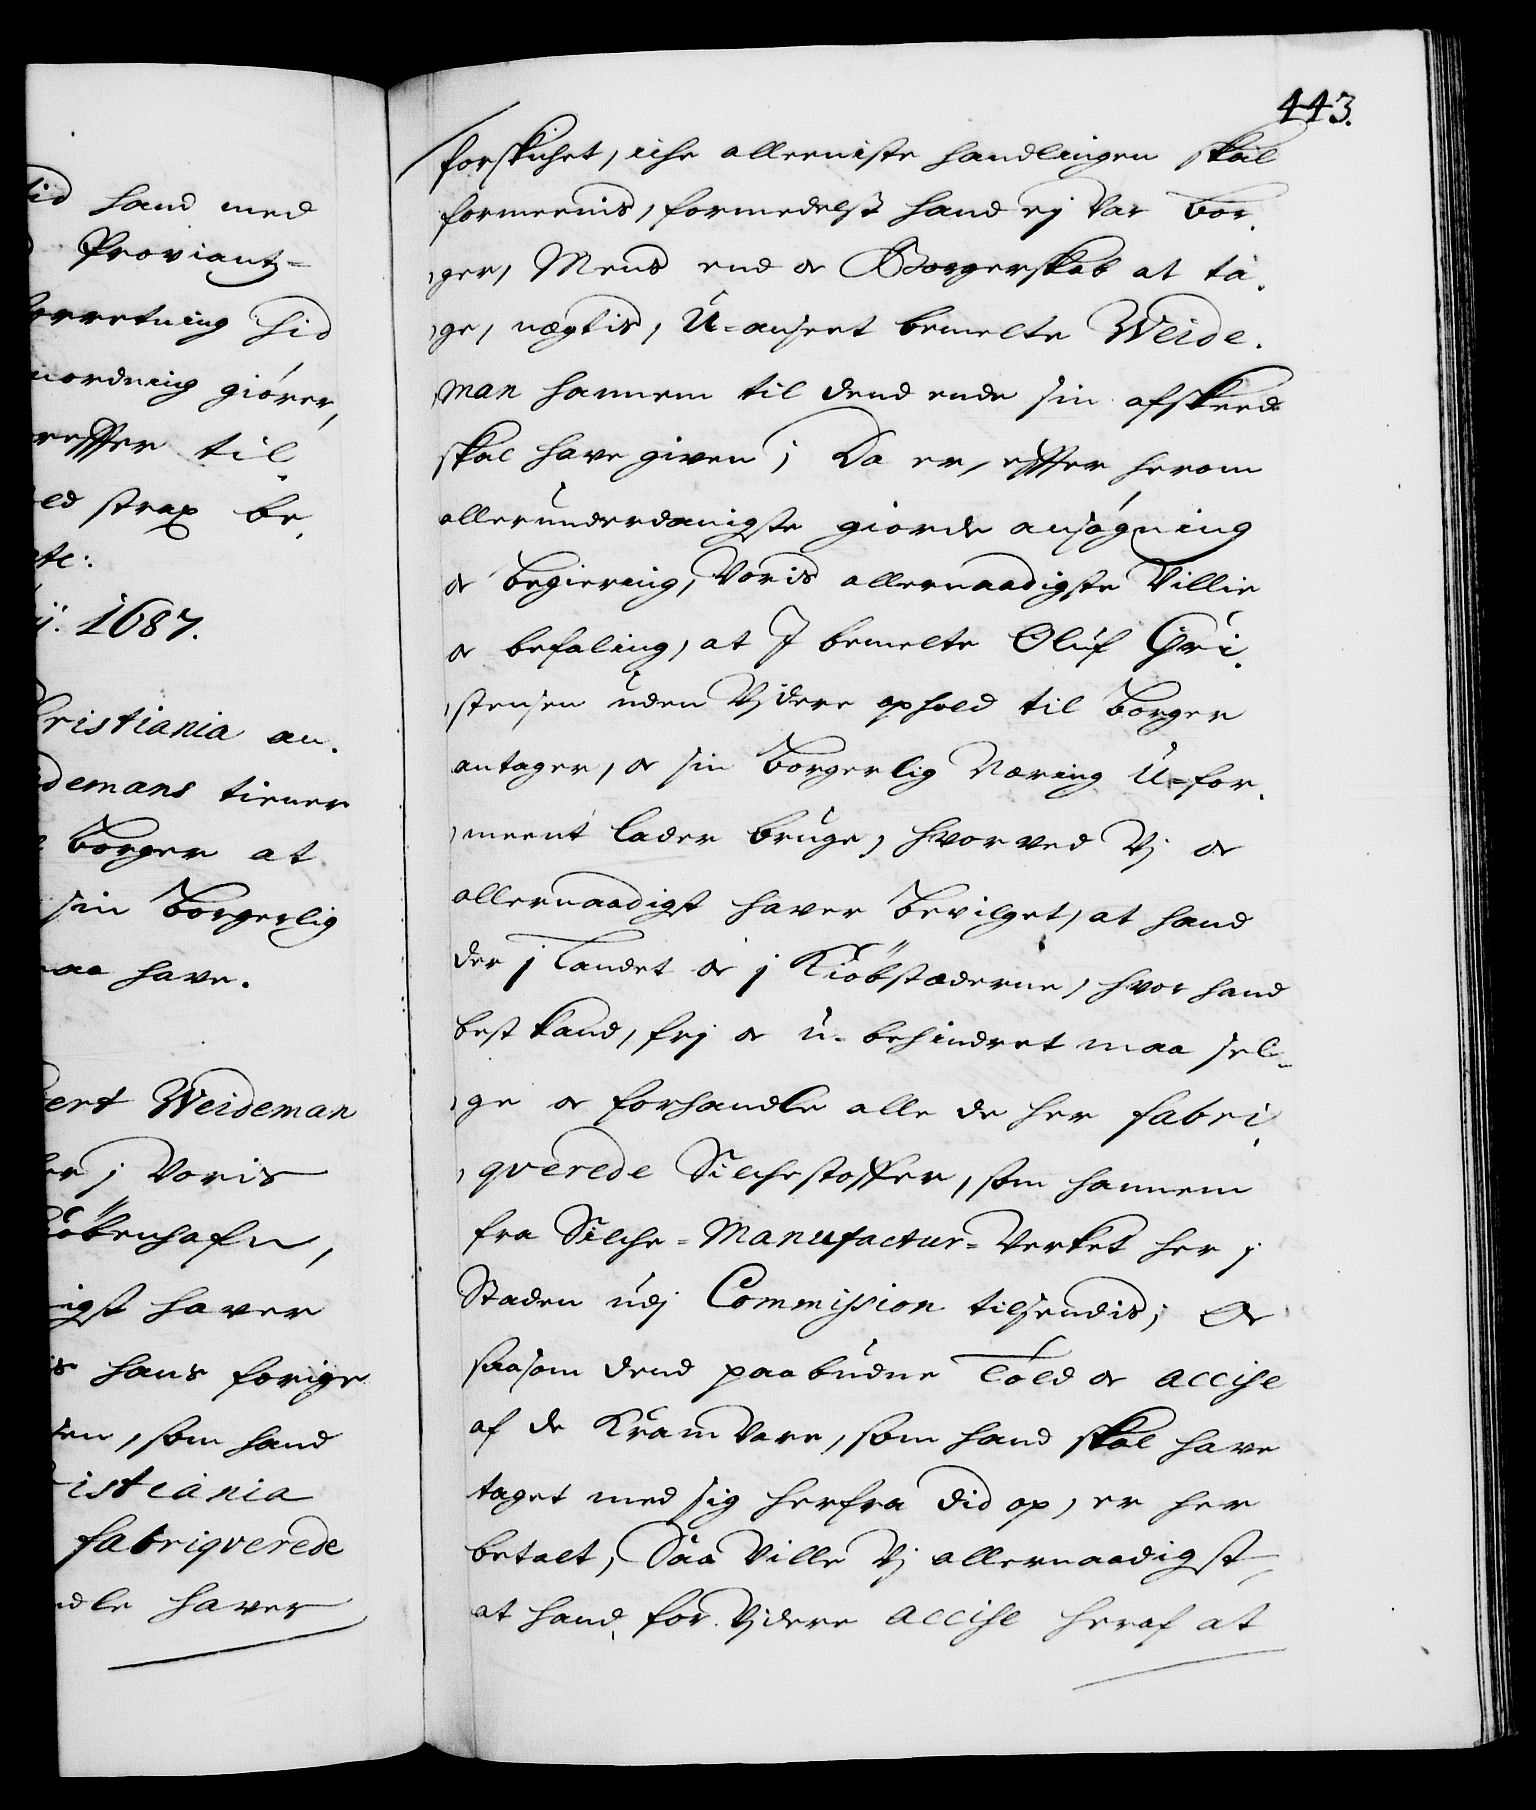 443.
tid hand med
Proviant-
forretning hid
nordning giörer,
reffter til
ed strax be-
etc:
ij. 1687.
Cristiania an-
demans tiener
Borger at
sin Borgerlig
maa have.
bert Weideman
er j Voris
Kiöbenhafn,
igst haver
is hans forige
sen, som hand
istiania
fabriqverede
ndle haver
forskichet, iche alleeniste handlingen skal
formeenis, formedelst hand ej var Bor-
ger, Mens end oc Borgerskab at ta-
ge, nægtis, U-anseet bemelte Weide-
man hannem til dend ende sin afskeed
skal have given; Da er, effter herom
allerunderdanigste giorde ansøgning
oc begiering, Voris allernaadigste Villie
oc befaling, at I bemelte Oluf Chri-
stensen uden Vjdere ophold til Borger
antager, oc sin Borgerlig Næring U-for-
meent lader bruge, hvorved Vj oc
allernaadigst haver Bevilget, at hand
der j Landet oc j Kiöbstæderne, hvor hand
best kand, frj oc u-behindret maa sel-
ge oc forhandle alle de her fabri-
qverede Silchestoffer, som hannem
fra Silche-Manufactur-Verket her j
Staden udj Commission tilsendis; Oc
saasom dend paabudne Told oc accise
af de Kram Vare, som hand skal have
taget med sig herfra did op, er her
betalt, Saa Ville Vj allernaadigst,
at hand for Vjdere accise heraf at